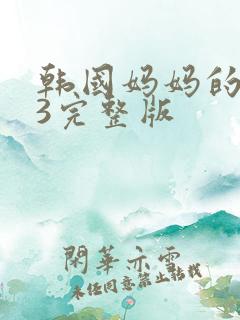 韩國妈妈的
3完整版
閑華亦雲
未经同意禁止转载